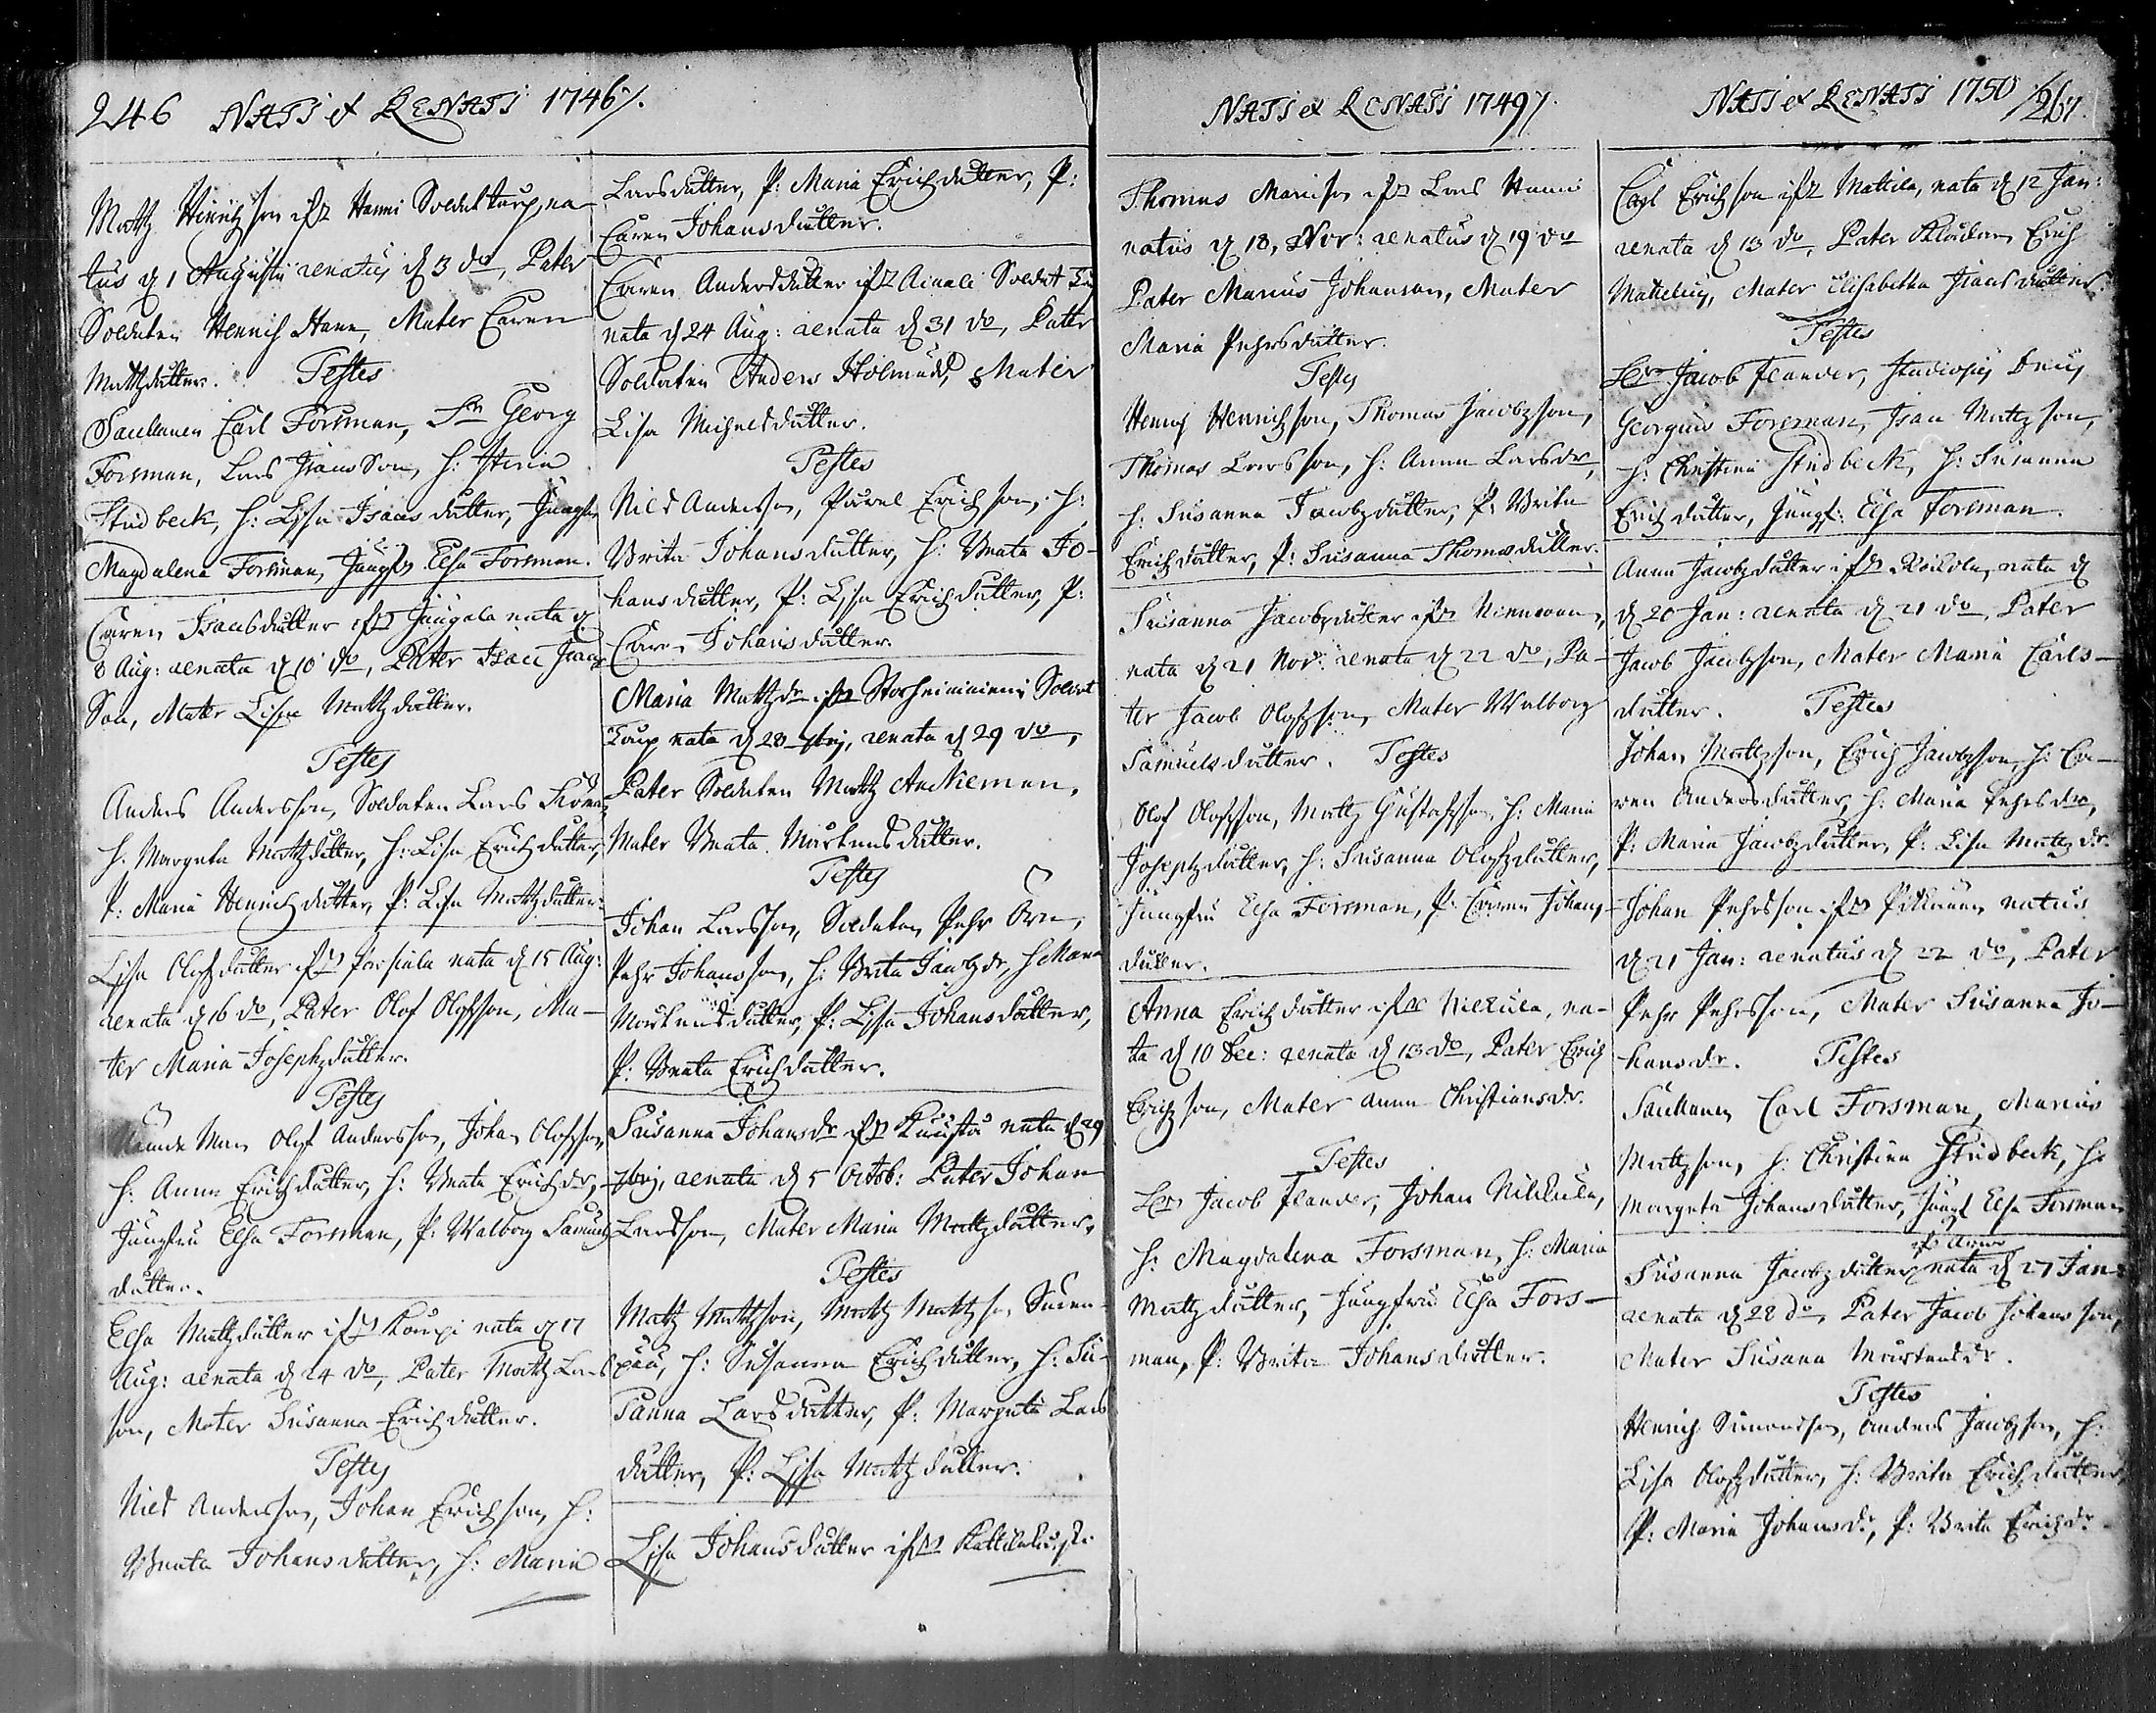 246 NATI et RENATI 1746/.
Mattz Hinrichson ifrå Hanni Soldat torp, na-
tus d 1 Augusti renatus d 3 do, Pater
Soldaten Henrich Hane, Mater Caren
Mattzdutter. Testes
Sacellanen Carl Forsman, Sn Georg
Forsman, Lars Isaacsson, h: Stina
Studbeck, h: Lisa Isaacsdutter, Jungfr
Magdalena Forsman, Jungfr Elsa Forsman.
Caren Isaacsdutter ifrå Jungala nata d
8 Aug: renata d 10 do, Pater Isaac Isaacs
Son, Mater Lisa Mattzdutter.
Testes
Anders Andersson, Soldaten Lars
h. Margeta Mattzdutter, h: Lisa Erichdutter,
P: Maria Henrichdutter, P: Lisa Mattzdutter.
Lisa Olofzdutter ifrå nata d 15 Aug:
renata d 16 do, Pater Olof Olofsson, Ma-
ter Maria Josephzdutter.
Testes
Olof Andersson, Johan Olofsson,
h. Anna Erichdutter, h: Beata Erichdr,
Jungfru Elsa Forsman, P: Walborg Samuels
dutter.
Elsa Mattzdutter ifrå Kauppi nata d 17
Aug: renata d 24 do, Pater Mattz Lars
son, Mater Susanna Erichdutter.
Testes
Nils Andersson, Johan Erichson, h:
Beata Johansdutter, h: Maria
Larsdutter, P: Maria Erichdutter, P:
Caren Johansdutter.
Caren Andersdutter ifrå Soldat
nata d 24 Aug: renata d 31 do, Pater
Soldaten Anders Holmudd, Mater
Lisa Michelsdutter.
Testes
Nils Andersson, Påvel Erichson, h:
Brita Johansdutter, h: Beata Jo-
hansdutter, P: Lisa Erichdutter, P:
Caren Johansdutter.
Maria Mattzdr ifrå Storheiniemi Soldat
Torp nata d 28 7brj, renata d 29 do,
Pater Soldaten Mattz Anckieman,
Mater Beata Mårtensdutter.
Testes
Johan Larsson, Soldaten Pehr Örn,
Pehr Johansson, h: Brita Jacobzdr, h Maria
Mårtensdutter, P: Lisa Johansdutter,
P: Beata Erichdutter.
Susanna Johansdr ifrå Knusta nata d 29
7brj, renata d 5 Octob: Pater Johan
Larsson, Mater Maria Mattzdutter,
Testes
Mattz Mattzson, Mattz Mattzson
h: Susanna Erichdutter, h: Su-
sanna Larsdutter, P: Margeta Lars
dutter, P: Lisa Mattzdutter.
Lisa Johansdutter ifrå
NATI et RENATI 1749/.
Thomas Mariuson ifrå Lars Hanni
natus d 18, Nov: renatus d 19 do
Pater Marius Johanson, Mater
Maria Pehrsdutter.
Testes
Henrich Henrichson, Thomas Jacobzson,
Thomas Larsson, h: Anna Larsdr,
h: Susanna Jacobzdutter, P: Brita
Erichdutter, P: Susanna Thomasdutter.
Susanna Jacobzdutter ifrå Niemaan,
nata d 21 Nov: renata d 22 do, Pa-
ter Jacob Olofsson, Mater Walborg
Samuelsdutter. Testes
Olof Olofsson, Mattz Gustafsson, h: Maria
Josephzdutter, h: Susanna Olofzdutter,
Jungfru Elsa Forsman, P: Caren Johans-
dutter.
Anna Erichdutter ifrå Nickula, na-
ta d 10 Dec: renata d 13 do, Pater Erich
Erichson, Mater Anna Christiansdr.
Testes
Hr Jacob Flander, Johan Nikkula,
h: Magdalena Forsman, h: Maria
Mattzdutter, Jungfru Elsa Fors-
man, P: Brita Johansdutter.
NATI et RENATI 1750 /267.
Carl Erichson ifrå Mattila, nata d 12 Jan:
renata d 13 do, Pater Erich
Mattelin, Mater Elisabetha Isacsdutter.
Testes
Hr Jacob Flander, Studiosus Dnus
Georgius Forsman, Isac Mattzson,
h: Christina Studbeck, h: Susanna
Erichdutter, Jungf: Elsa Forsman.
Anna Jacobzdutter ifrå nata d
d 20 Jan: renata d 21 do, Pater
Jacob Jacobzson, Mater Maria Carls-
dutter. Testes
Johan Mattzson, Erich Jacobzson, h: Ca-
ren Andersdutter, h: Maria Pehrsdr,
P: Maria Jacobzdutter, P: Lisa Mattzdr.
Johan Pehrsson ifrå natus
d 21 Jan: renatus d 22 do, Pater
Pehr Pehrsson, Mater Susanna Jo-
hansdr. Testes
Sacellanen Carl Forsman, Marius
Mattzson, h: Christina Studbeck, h:
Margeta Johansdutter, Jungf Elsa Forsman
Susanna Jacobzdutter nata d 27 Jan:
renata d 28 do, Pater Jacob Johansson,
Mater Susana Mårtensdr.
Testes
Henrich Simonsson, Anders Jacobzson, h:
Lisa Olofzdutter, h: Brita Erichdutter,
P: Maria Johansdr, P: Brita Erichdr.